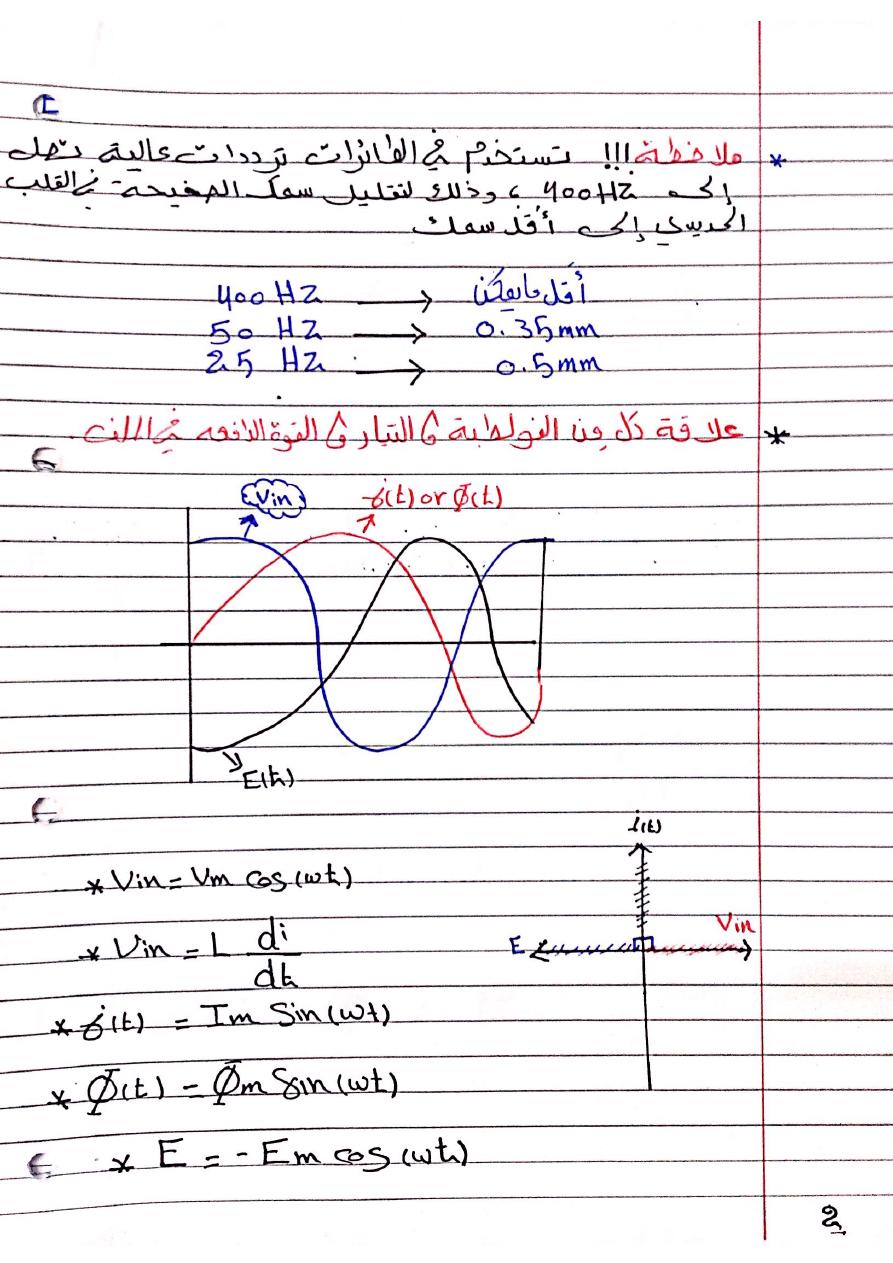 * ملاحظة!!! تستخدم في الطائرات ترددات عالية تصل
إلى 400HZ، وذلك لتقليل سمك الصفيحة في القلب
الحديدي إلى أقل سمك
400 HZ → أقل ما يمكن
50 HZ → 0.35mm
25 HZ → 0.5mm
* علاقة كل من الفولطية و التيار و القوة الدافعه في الملف
Vin
i(t) or Φ(t)
E(t)
i(t)
Vin
E
* Vin = Vm cos(wt)
* Vin = L di/dt
* i(t) = Im Sin(wt)
* Φ(t) = Φm Sin(wt)
* E = - Em cos(wt)
2